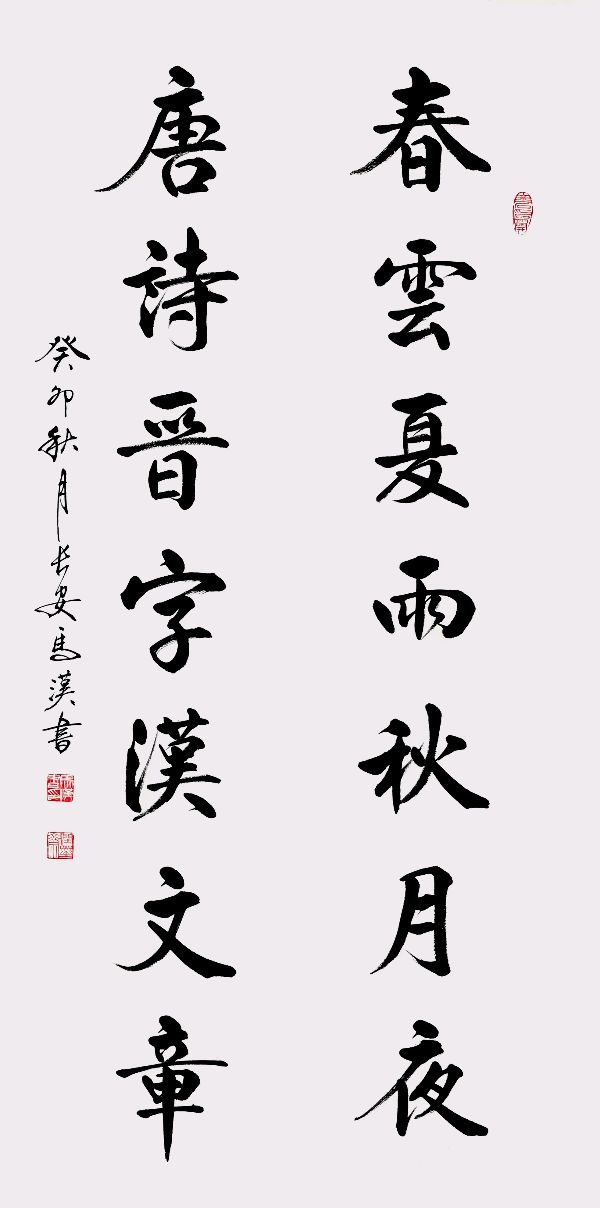 春雲夏雨秋月夜
唐詩晉字漢文章
癸卯秋月长安馬漢書